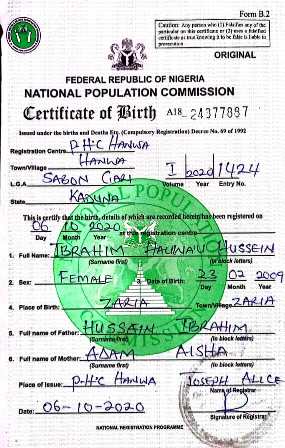 Form B.2
Caution: Any person who (1) Falsifies any of the
particular on this certificate or (2) uses a falsified
certificate as true knowing it to be false is liable to
prosecution
ORIGINAL
FEDERAL REPUBLIC OF NIGERIA
NATIONAL POPULATION COMMISSION
Certificate of Birth A18 24377887
Issued under the births and Deaths Etc. (Compulsory Registration) Decree No. 69 of 1992
Registration Centre P.H.C HANWA
Town/Village HANWA
I 2020 1424
L.G.A SABON GARI Volume Year Entry No.
State KADUNA
This is certify that the birth, details of which are recorded herein has been registered on
06 10 2020 at this registration centre
Day Month Year
1. Full Name: IBRAHIM HAUWAU HUSSEIN
(Surname first) (In block letters)
2. Sex: FEMALE 3. Date of Birth: 23 02 2009
Day Month Year
4. Place of Birth: ZARIA Town/Village ZARIA
5. Full name of Father: HUSSAIN IBRAHIM
(Surname first) (In block letters)
6. Full name of Mother: ADAM AISHA
(Surname first) (In block letters)
Place of Issue: P.H.C HANWA JOSEPH ALICE
Name of Registrar
Date: 06-10-2020
Signature of Registrar
NATIONAL REGISTRATION PROGRAMME